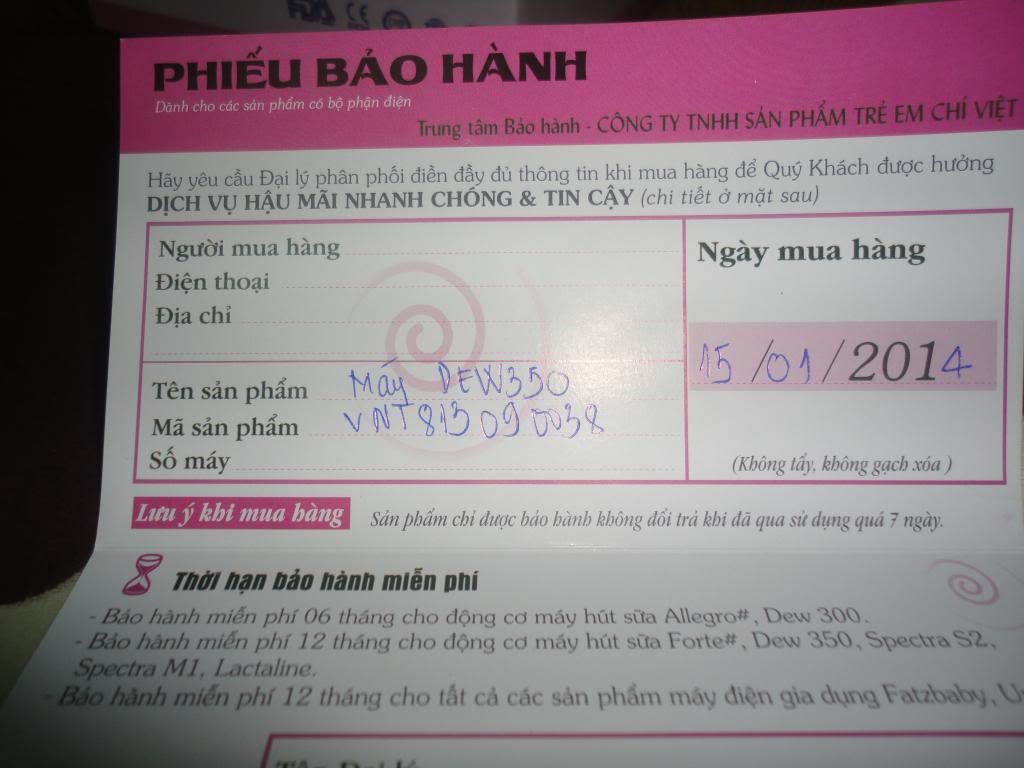 FDA CE
PHIẾU BẢO HÀNH
Dành cho các sản phẩm có bộ phận điện
Trung tâm Bảo hành - CÔNG TY TNHH SẢN PHẨM TRẺ EM CHÍ VIỆT
Hãy yêu cầu Đại lý phân phối điền đầy đủ thông tin khi mua hàng để Quý Khách được hưởng
DỊCH VỤ HẬU MÃI NHANH CHÓNG & TIN CẬY (chi tiết ở mặt sau)
Người mua hàng
Điện thoại
Địa chỉ
Tên sản phẩm Máy DEW350
Mã sản phẩm VNT813090038
Số máy
Ngày mua hàng
15/01/2014
(Không tẩy, không gạch xóa)
Lưu ý khi mua hàng Sản phẩm chỉ được bảo hành không đổi trả khi đã qua sử dụng quá 7 ngày.
Thời hạn bảo hành miễn phí
- Bảo hành miễn phí 06 tháng cho động cơ máy hút sữa Allegro#, Dew 300.
- Bảo hành miễn phí 12 tháng cho động cơ máy hút sữa Forte#, Dew 350, Spectra S2,
Spectra M1, Lactaline.
- Bảo hành miễn phí 12 tháng cho tất cả các sản phẩm máy điện gia dụng Fatzbaby,
Tên Đại lý